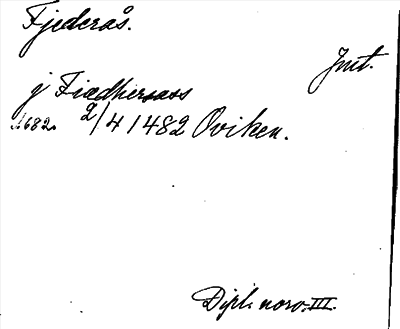 Fjederås.
Jmt.
j Fiædhersass
1682. 2/4 1482 Oviken.
Dipl. norv. III.